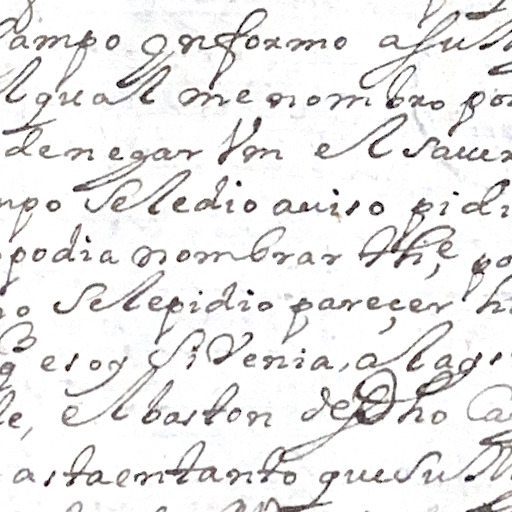 campo ynformo a su M
el qual me nombro por
denegar Vm el saver
mpo se le dio auiso pidi
podia nombrar thę po
no se le pidio pareçer h
q esoy si Venia, a las
le, el baston de dho Ca
asta en tanto que su M